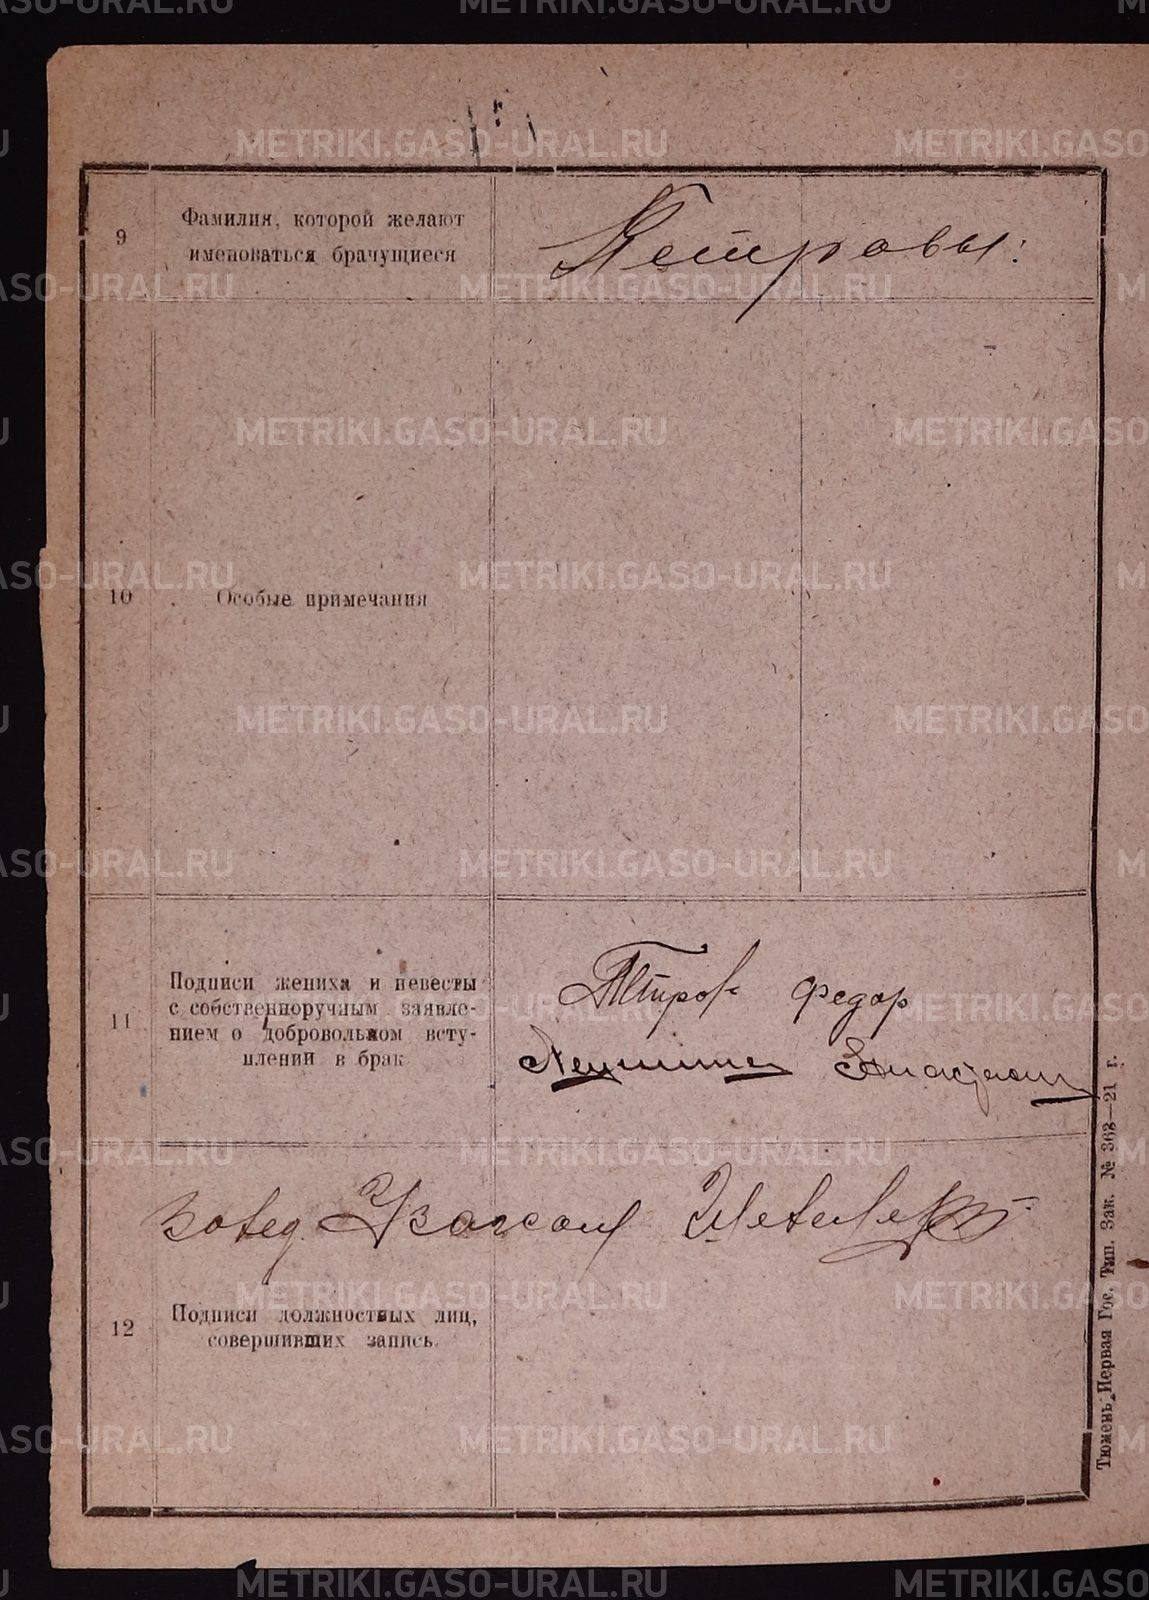 9
Фамилия, которой желают
именоваться брачущиеся
Петровы:
10
Особые примечания
11
Подписи жениха и невесты
с собственноручным заявле-
нием о добровольном всту-
плении в брак
Петров Федор
12
Подписи должностных лиц,
совершивших запись.
Тюмень, Первая Гос. Тип. Зак. № 363—21 г.
METRIKI.GASO-URAL.RU